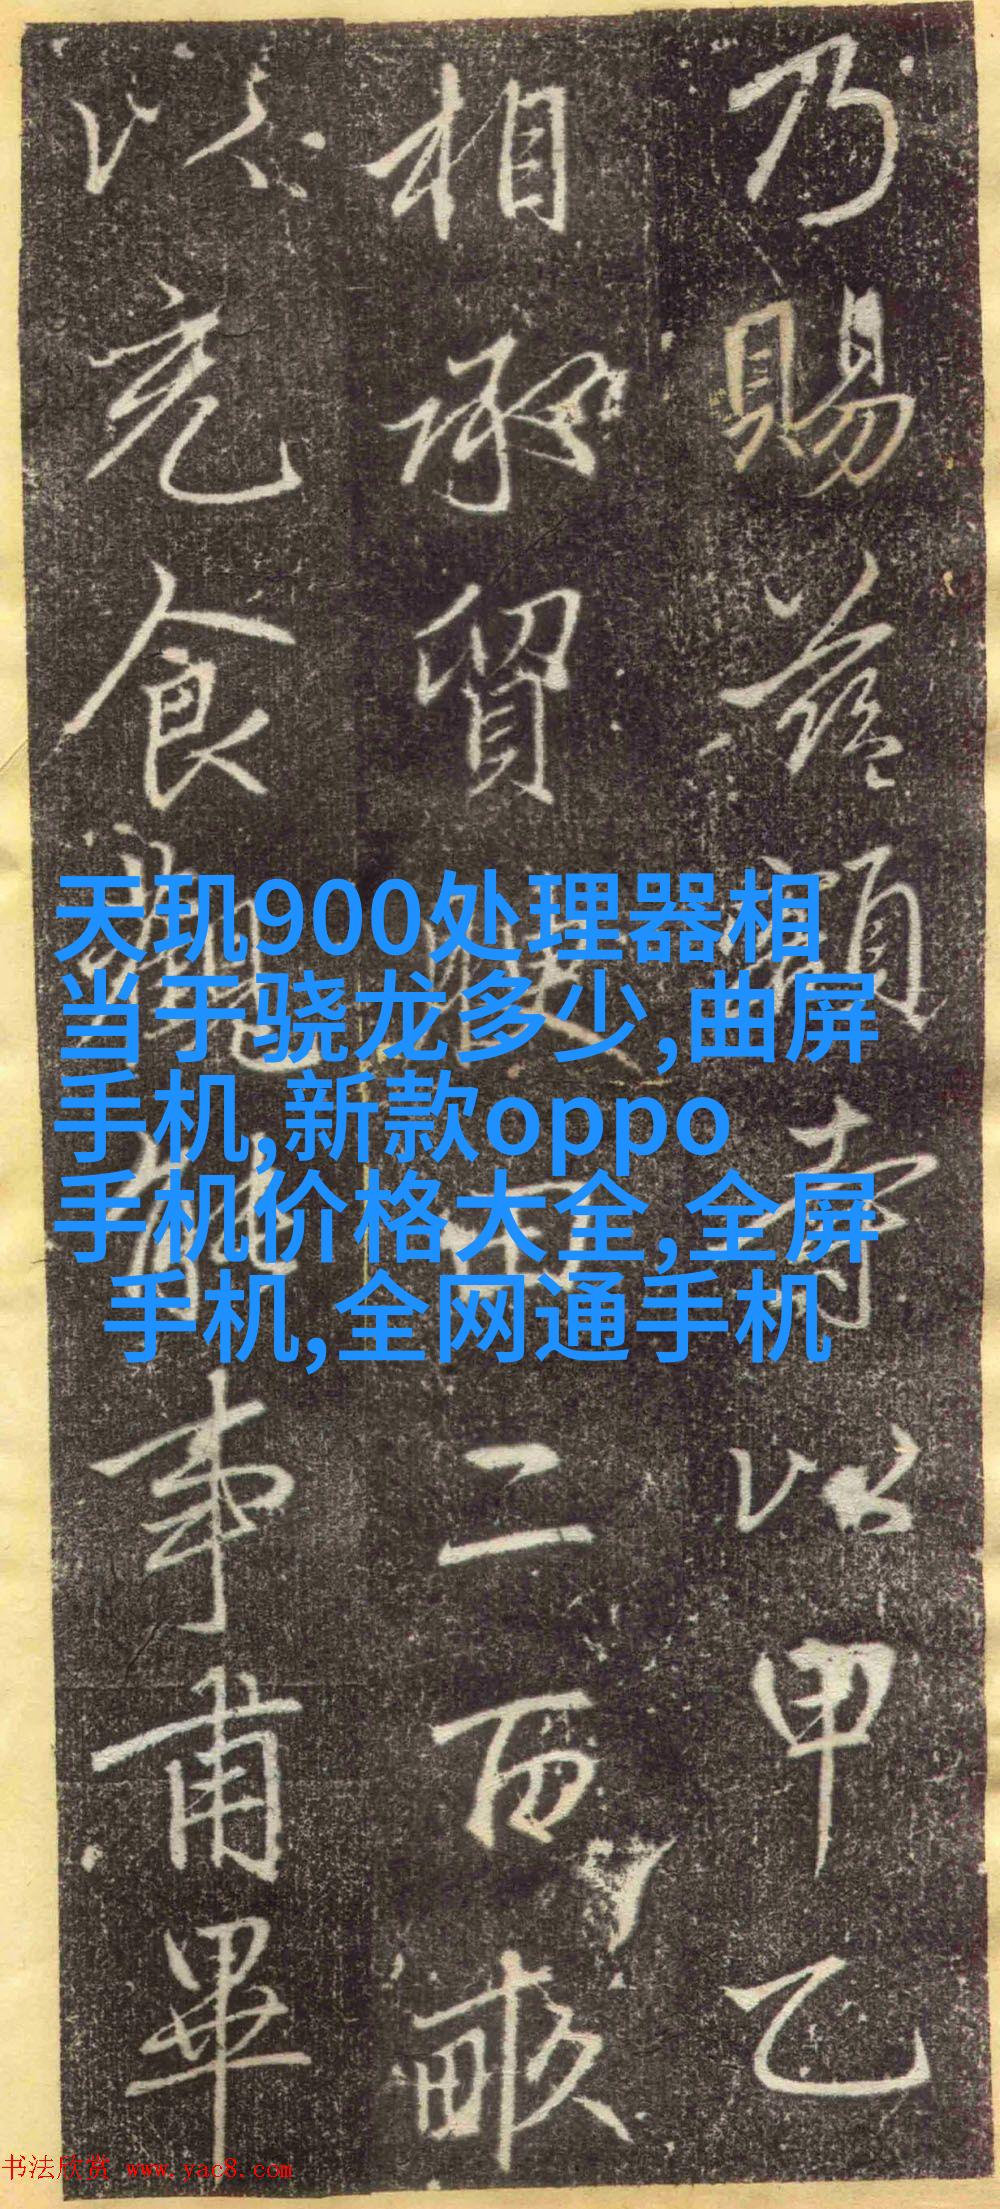 乃賜
以甲乙
相承貿
二百畝
以充食
事甫畢
天玑900处理器相
当于骁龙多少,曲屏
手机,新款oppo
手机价格大全,全屏
手机,全网通手机
书法欣赏 www.yac8.com